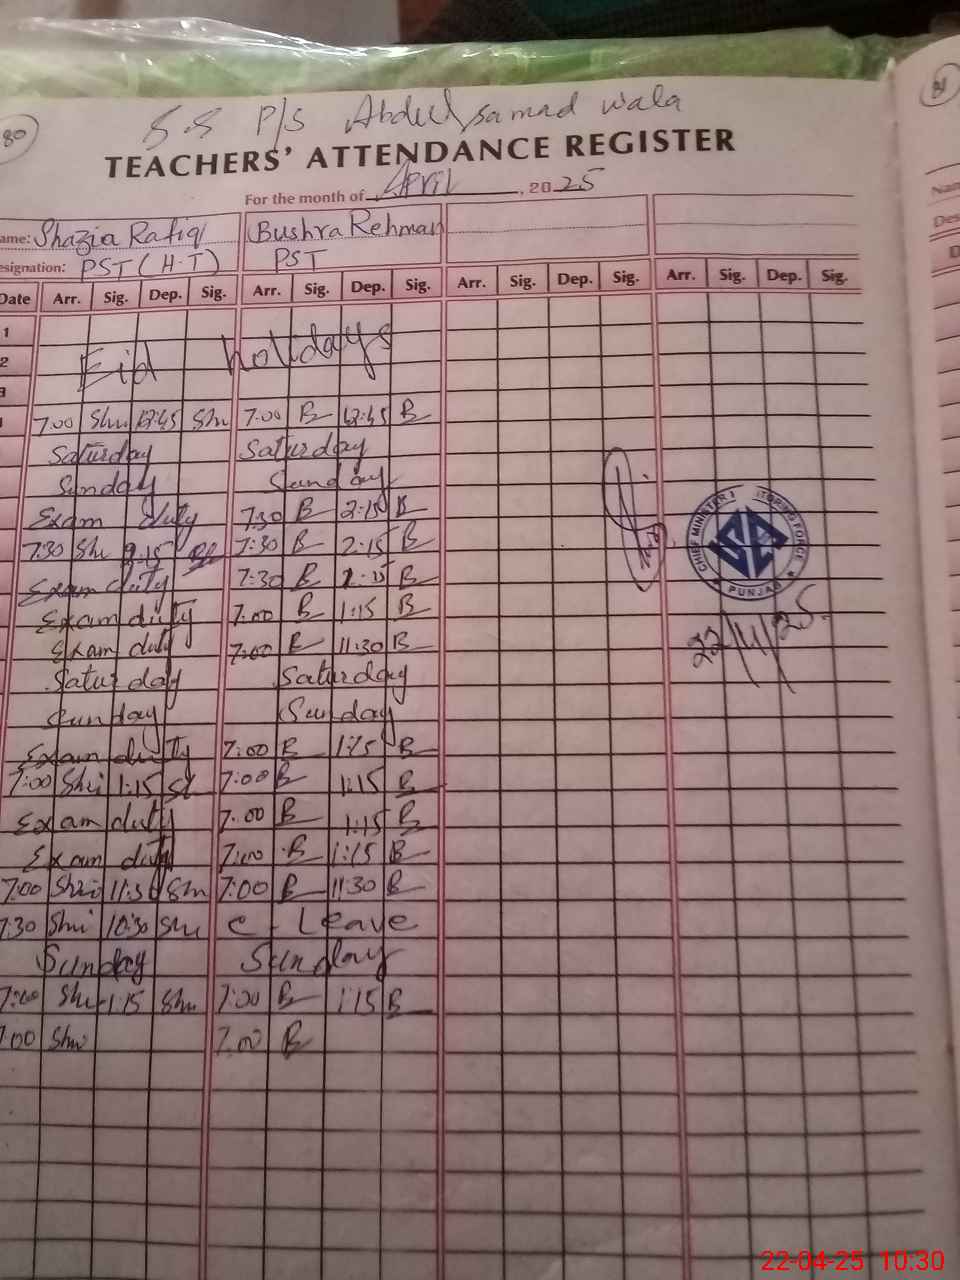 80
P/S Abdul samad wala
TEACHERS' ATTENDANCE REGISTER
For the month of April, 2025
ame: Shazia Rafiq Bushra Rehman
esignation: PST (H.T) PST
Date Arr. Sig. Dep. Sig. Arr. Sig. Dep. Sig. Arr. Sig. Dep. Sig. Arr. Sig. Dep. Sig.
1
2
Eid holidays
3
7.00 Shu 12:45 Shu 7.00 B 12:45 B
Saturday Saturday
Sunday Sunday
Exam duty 7:30 B 2:15 B
7:30 Shu 7:30 B 2:15 B
Exam duty 7:30 B B
Exam duty 7:00 B 1:15 B
Exam duty 7:00 B 11:30 B
Saturday Saturday
Sunday Sunday
Exam duty 7:00 B 1:15 B
7:00 Shi 1:15 7:00 B 1:15 B
Exam duty 7:00 B 1:15 B
Exam duty 7:00 B 1:15 B
7:00 11:30 Shu 7:00 B 11:30 B
7:30 Shi 10:30 Shu C-Leave
Sunday Sunday
7:00 Shu 1:15 Shu 7:00 B 1:15 B
7:00 Shi 7.00 B
CHIEF MINISTER
ITORING FORCE
PUNJAB
81
Nam
Des
D
22-04-25 10:30